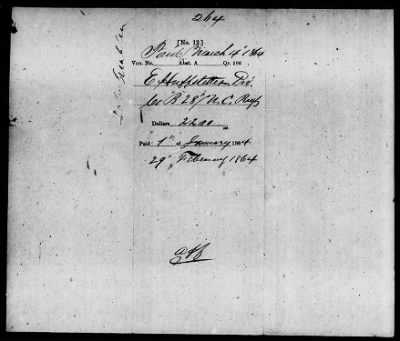 264
[No. 12]
Paid March 4 1864
Vou. No. Abst. A Qr. 186
E Huffstetler Pri.
Co B 28" N.C. Regt
Dollars, 22.00
Paid 1st January 1864
29" February 1864